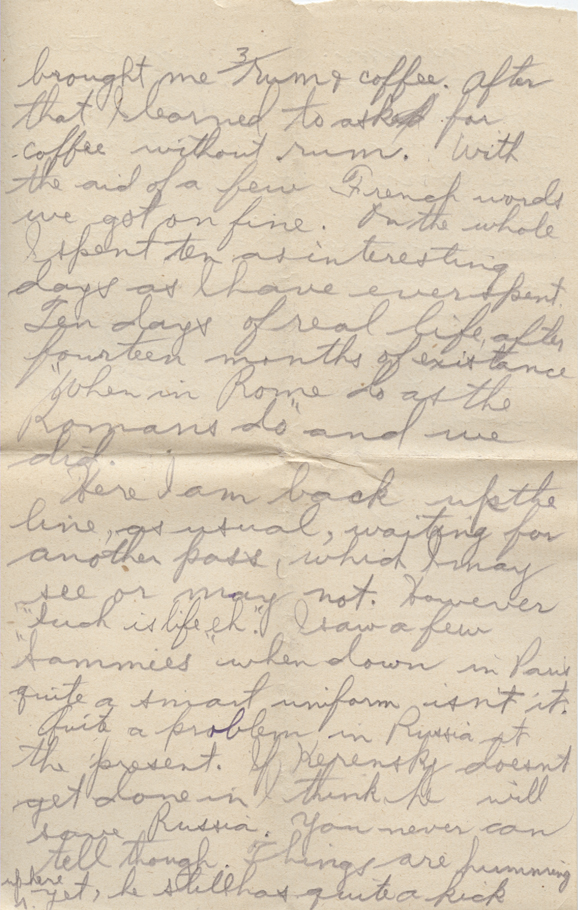 3/
brought me rum & coffee. After
that I learned to ask for
coffee without rum. With
the aid of a few French words
we got on fine. On the whole
I spent ten as interesting
days as I have ever spent.
Ten days of real life, after
fourteen months of existance
"When in Rome do as the
Romans do" and we
did.
Here I am back up the
line, as usual, waiting for
another pass, which I may
see or may not. However
"such is life, eh." I saw a few
"Sammies" when down in Paris
quite a smart uniform isn't it.
Quite a problem in Russia at
the present. If Kerensky doesnt
get done in I think he will
save Russia. You never can
tell though. Things are humming
up here
yet, he still has quite a kick